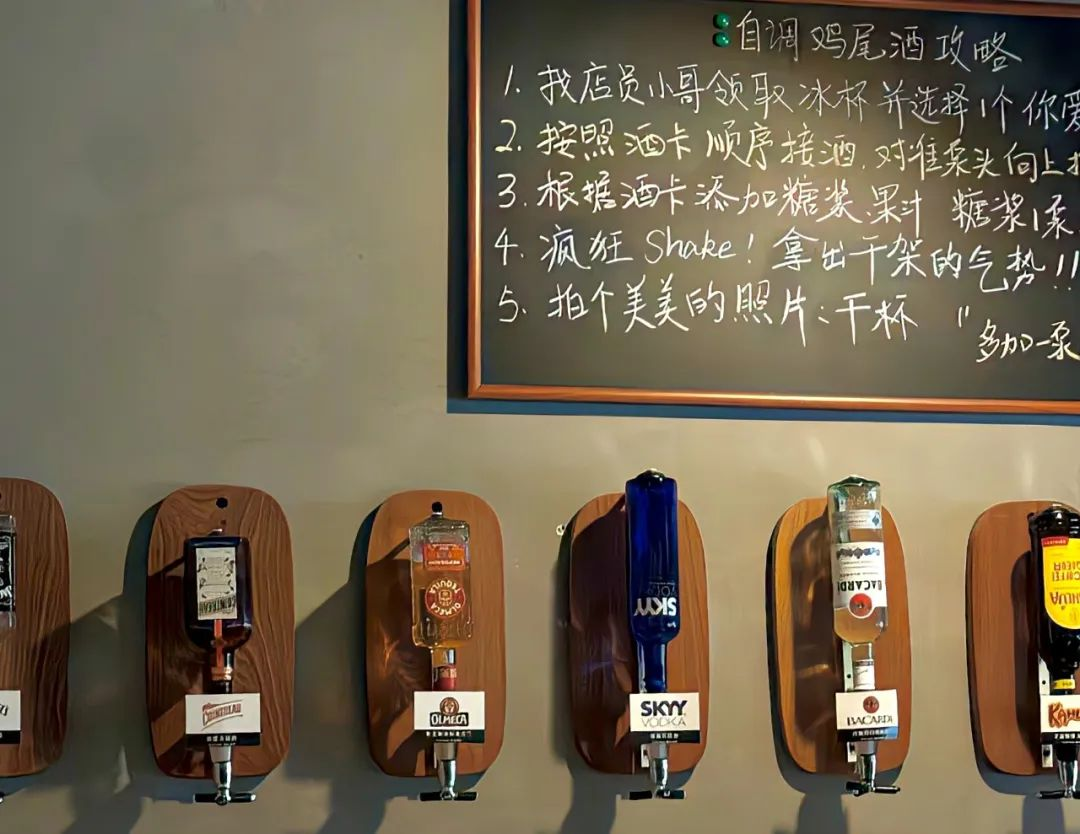 自调鸡尾酒攻略
1. 找店员小哥领取冰杯并选择1个你爱
2. 按照酒卡顺序接酒.对准泵头向上
3. 根据酒卡添加糖浆.果汁 糖浆1泵.
4. 疯狂 Shake! 拿出干架的气势!!
5. 拍个美美的照片:干杯
多加一泵
COINTREAU
COINTREAU
TEQUILA
OLMECA
OLMECA
SKYY
VODKA
SKYY
VODKA
BACARDI
BACARDI
COFFEE